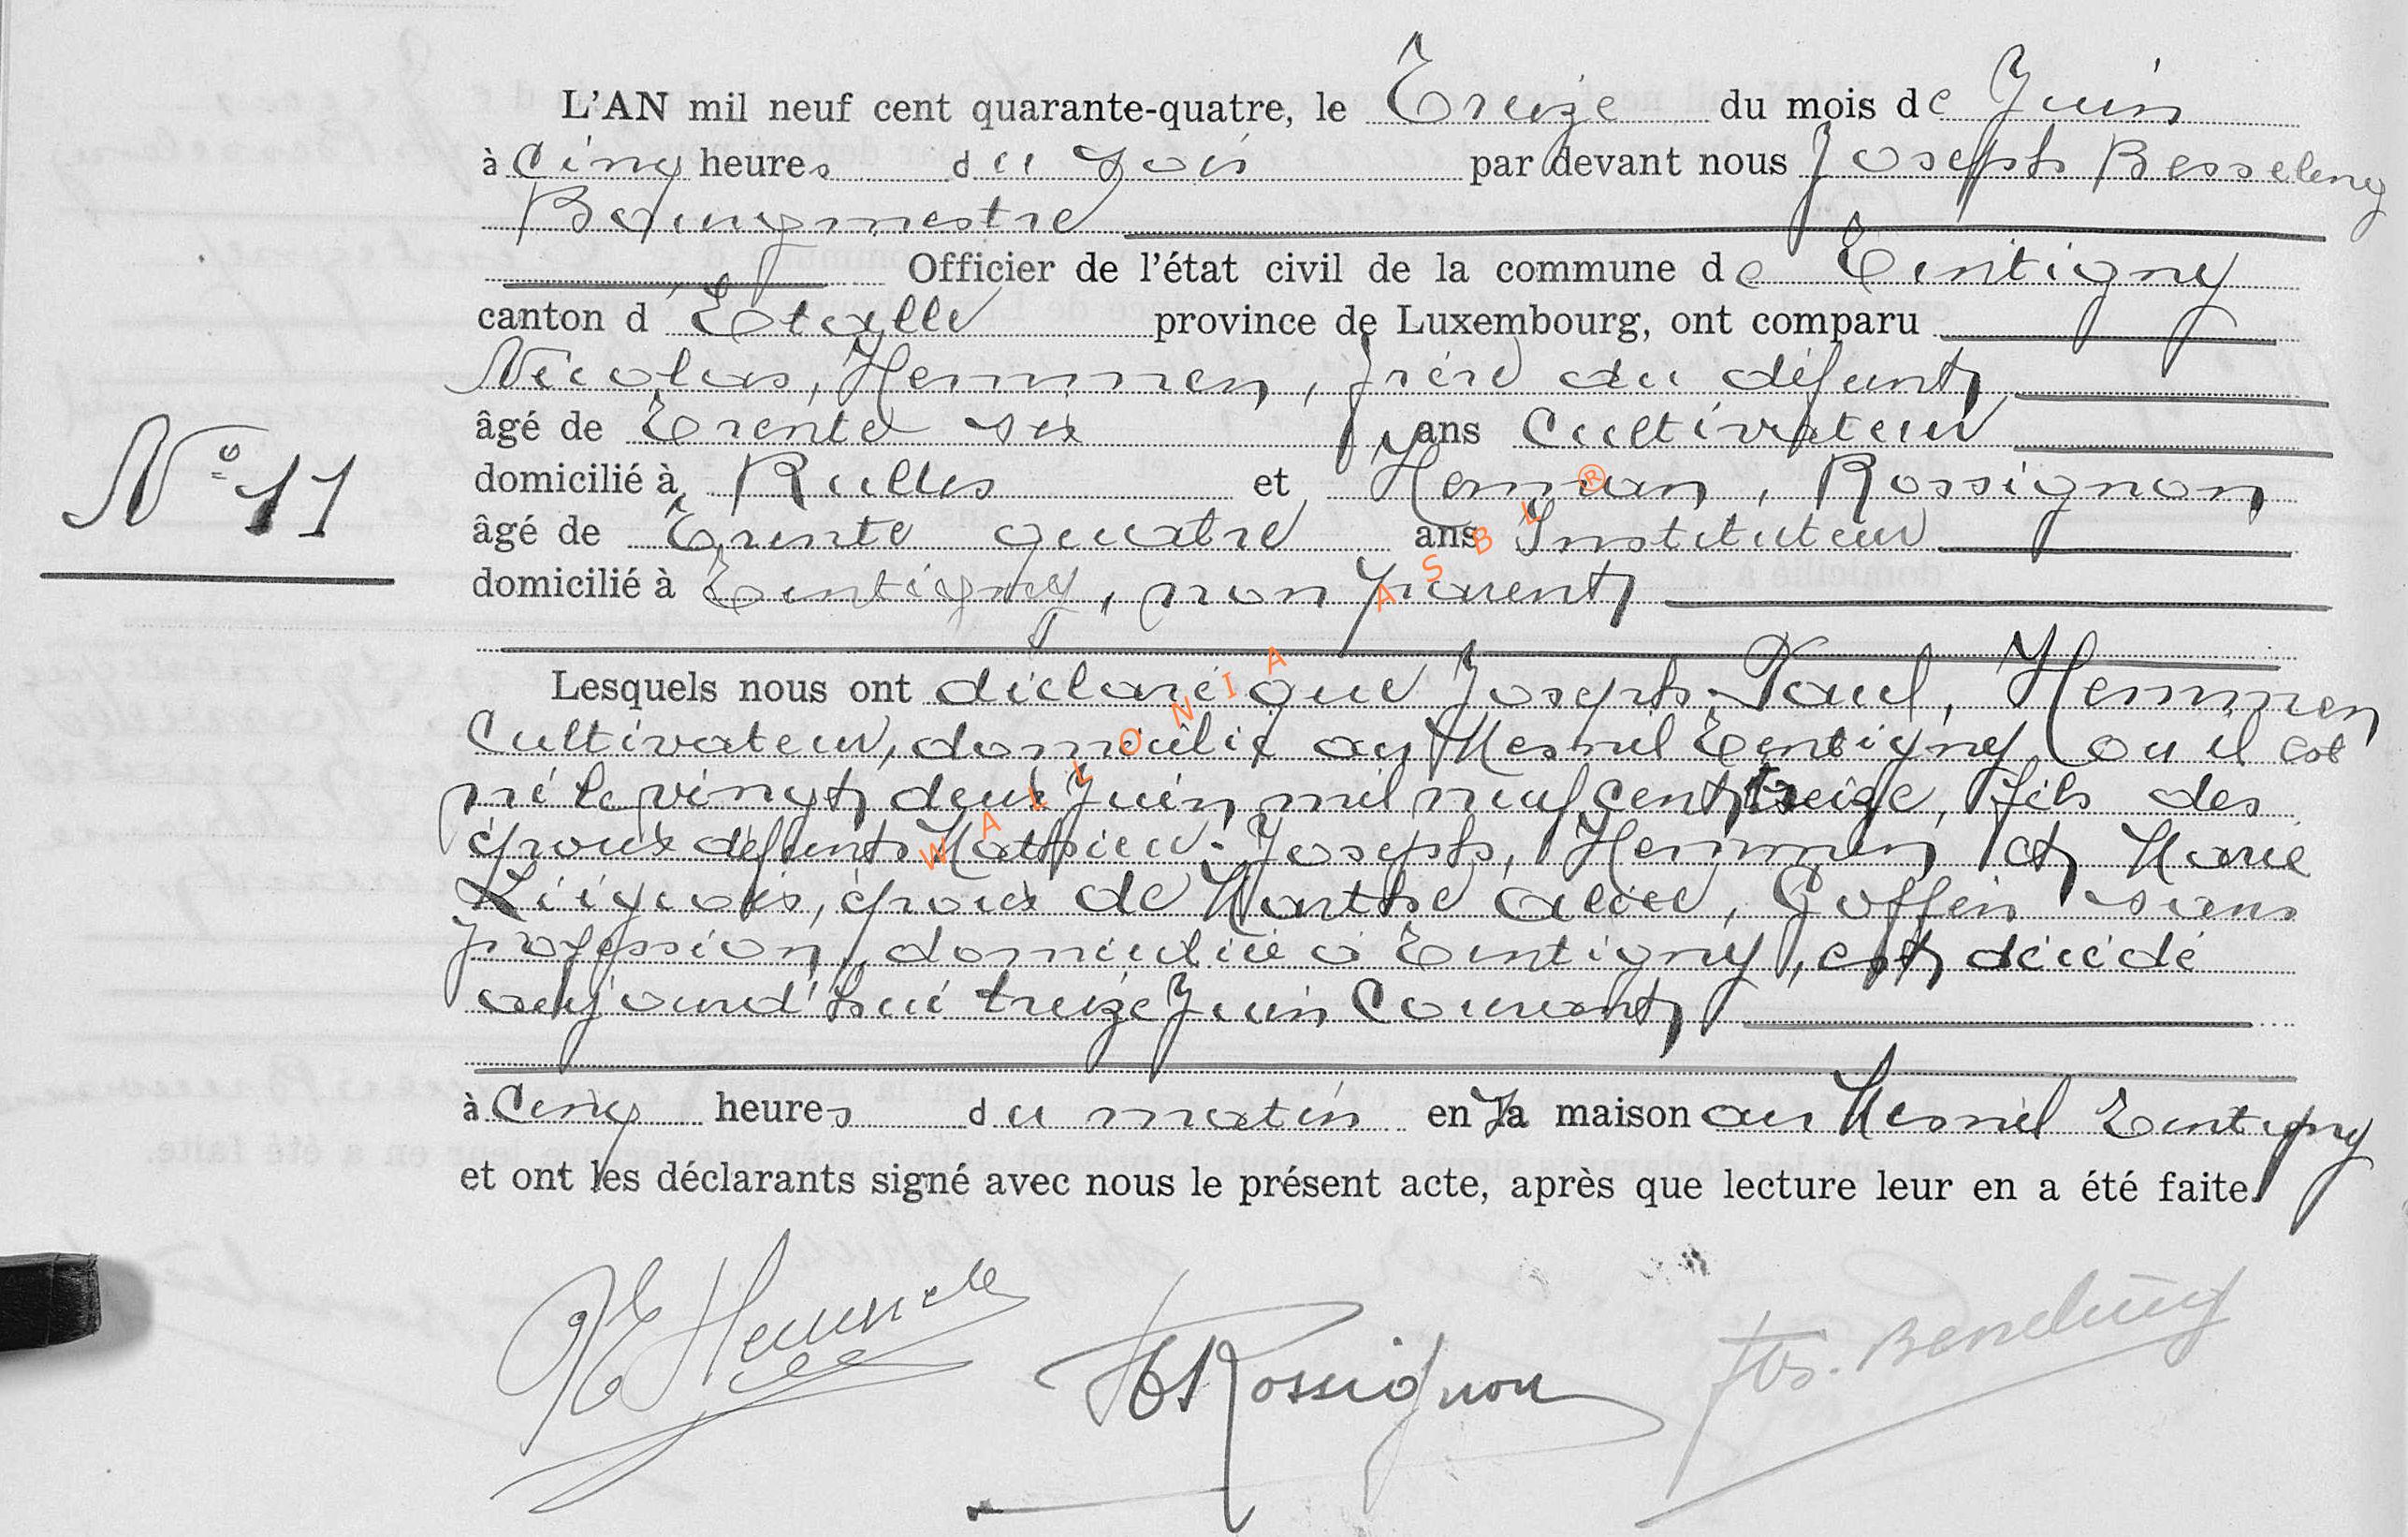 L'AN mil neuf cent quarante-quatre, le Treize du mois de Juin
à cinq heures du soir par devant nous Joseph Besseling
Bourgmestre
Officier de l'état civil de la commune de Tintigny
canton d'Etalle province de Luxembourg, ont comparu
Nicolas, Hemmen, frère du défunt
âgé de Trente six ans Cultivateur
domicilié à Rulles et Herman, Rossignon
âgé de Trente quatre ans Instituteur
domicilié à Tintigny, non parent
N° 11
Lesquels nous ont déclaré que Joseph-Paul, Hemmen
Cultivateur, domicilié au Mesnil Tintigny ou il est
né le vingt deux Juin mil neuf cent treize, fils des
époux défunts Mathieu-Joseph, Hemmen et Marie
Liégeois, époux de Marthe Alice, Goffin sans
profession, domiciliée à Tintigny, est décédé
aujourd'hui treize Juin Courant
à Cinq heures du matin en sa maison au Mesnil Tintigny
et ont les déclarants signé avec nous le présent acte, après que lecture leur en a été faite.
Hemmen
H Rossignon
WALLONIA ASBL ®